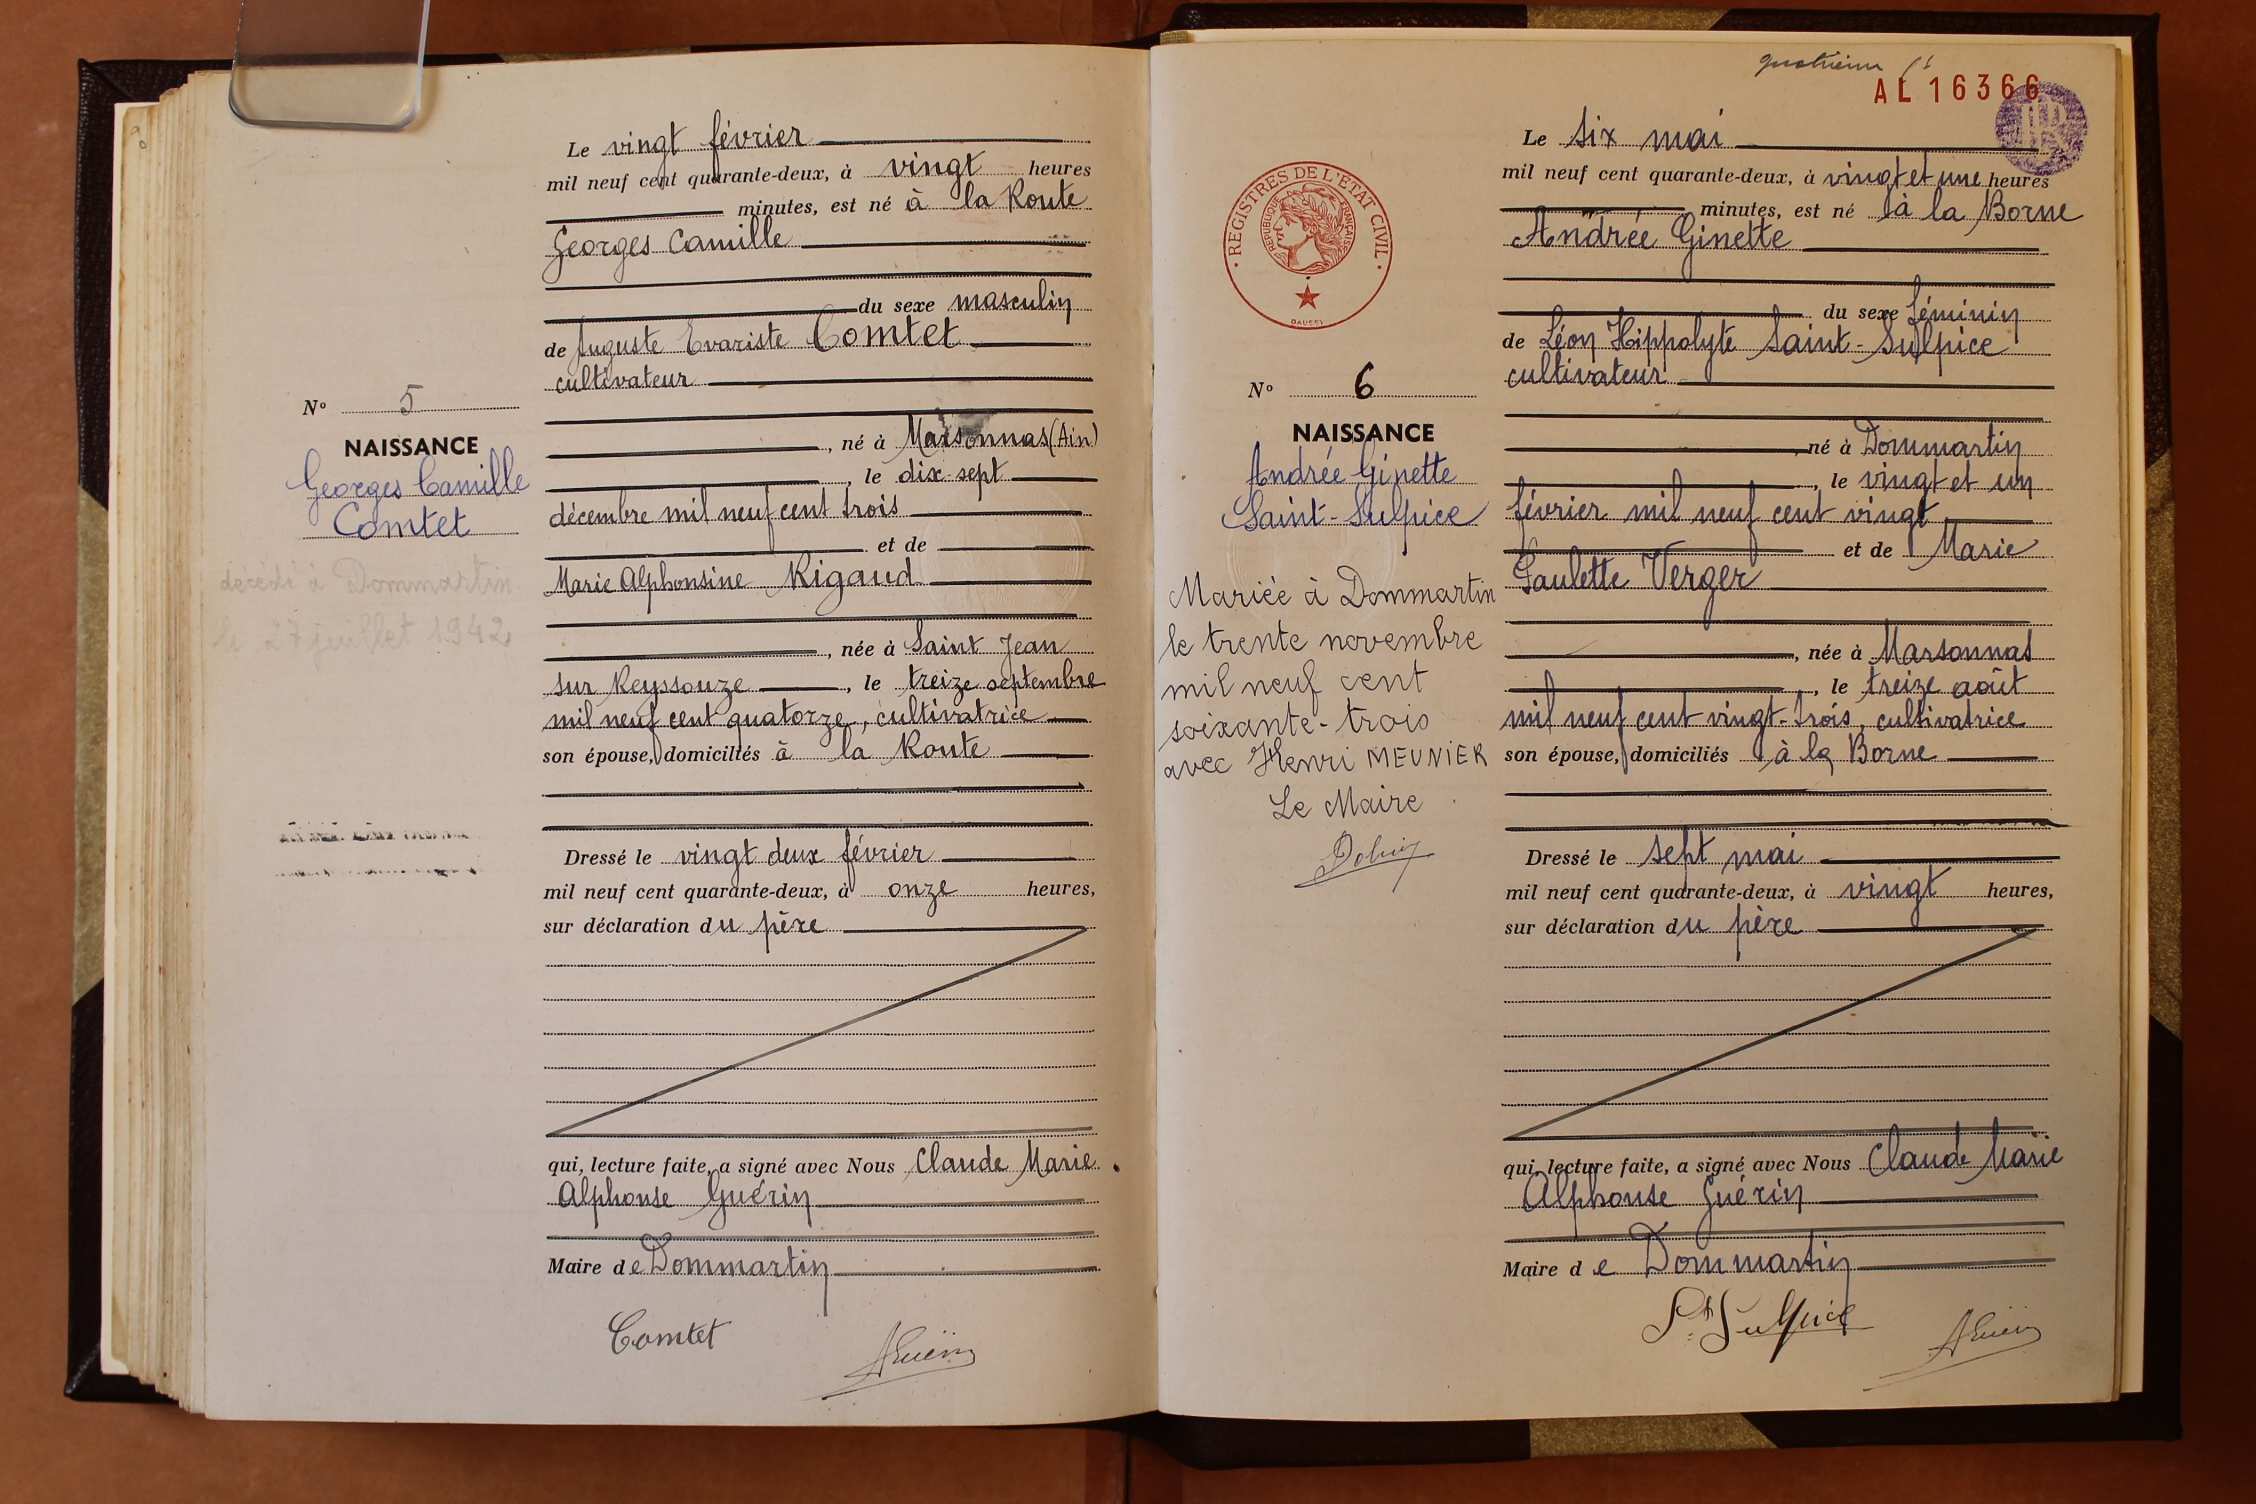 Le vingt février
mil neuf cent quarante-deux, à vingt heures
minutes, est né à la Route
Georges Camille
du sexe masculin
de Auguste Evariste Comtet
cultivateur
, né à Marsonnas (Ain)
, le dix-sept
décembre mil neuf cent trois
et de
Marie Alphonsine Rigaud
, née à Saint Jean
sur Reyssouze , le treize septembre
mil neuf cent quatorze, cultivatrice
son épouse, domiciliés à la Route
Dressé le vingt deux février
mil neuf cent quarante-deux, à onze heures,
sur déclaration du père
qui, lecture faite, a signé avec Nous Claude Marie
Alphonse Guérin
Maire de Dommartin
Comtet
AGuérin
N° 5
NAISSANCE
Georges Camille
Comtet
décédé à Dommartin
le 27 juillet 1942
AL 16366
REGISTRES DE L'ÉTAT CIVIL
RÉPUBLIQUE FRANÇAISE
N° 6
NAISSANCE
Andrée Ginette
Saint-Sulpice
Mariée à Dommartin
le trente novembre
mil neuf cent
soixante-trois
avec Henri MEUNIER
Le Maire
Le six mai
mil neuf cent quarante-deux, à vingt et une heures
minutes, est né à la Borne
Andrée Ginette
du sexe féminin
de Léon Hippolyte Saint-Sulpice
cultivateur
, né à Dommartin
, le vingt et un
février mil neuf cent vingt
et de Marie
Paulette Verger
, née à Marsonnas
, le treize août
mil neuf cent vingt-trois, cultivatrice
son épouse, domiciliés à la Borne
Dressé le sept mai
mil neuf cent quarante-deux, à vingt heures,
sur déclaration du père
qui, lecture faite, a signé avec Nous Claude Marie
Alphonse Guérin
Maire de Dommartin
St Sulpice
AGuérin